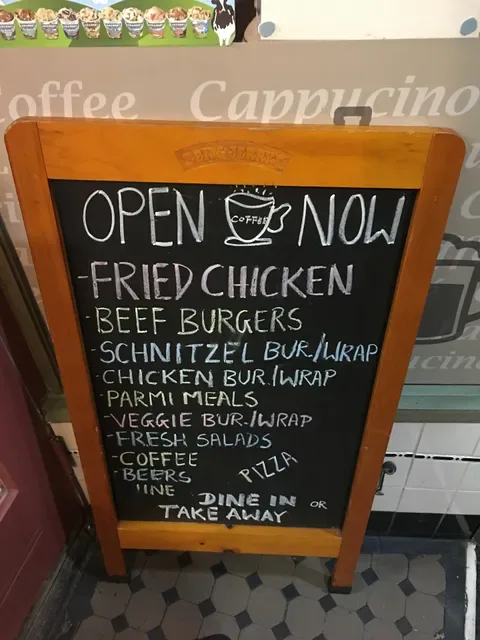 Coffee
Cappucino
OPEN COFFEE NOW
-FRIED CHICKEN
-BEEF BURGERS
-SCHNITZEL BUR./WRAP
-CHICKEN BUR./WRAP
-PARMI MEALS
-VEGGIE BUR./WRAP
-FRESH SALADS
-COFFEE
-BEERS
PIZZA
DINE IN OR
TAKE AWAY